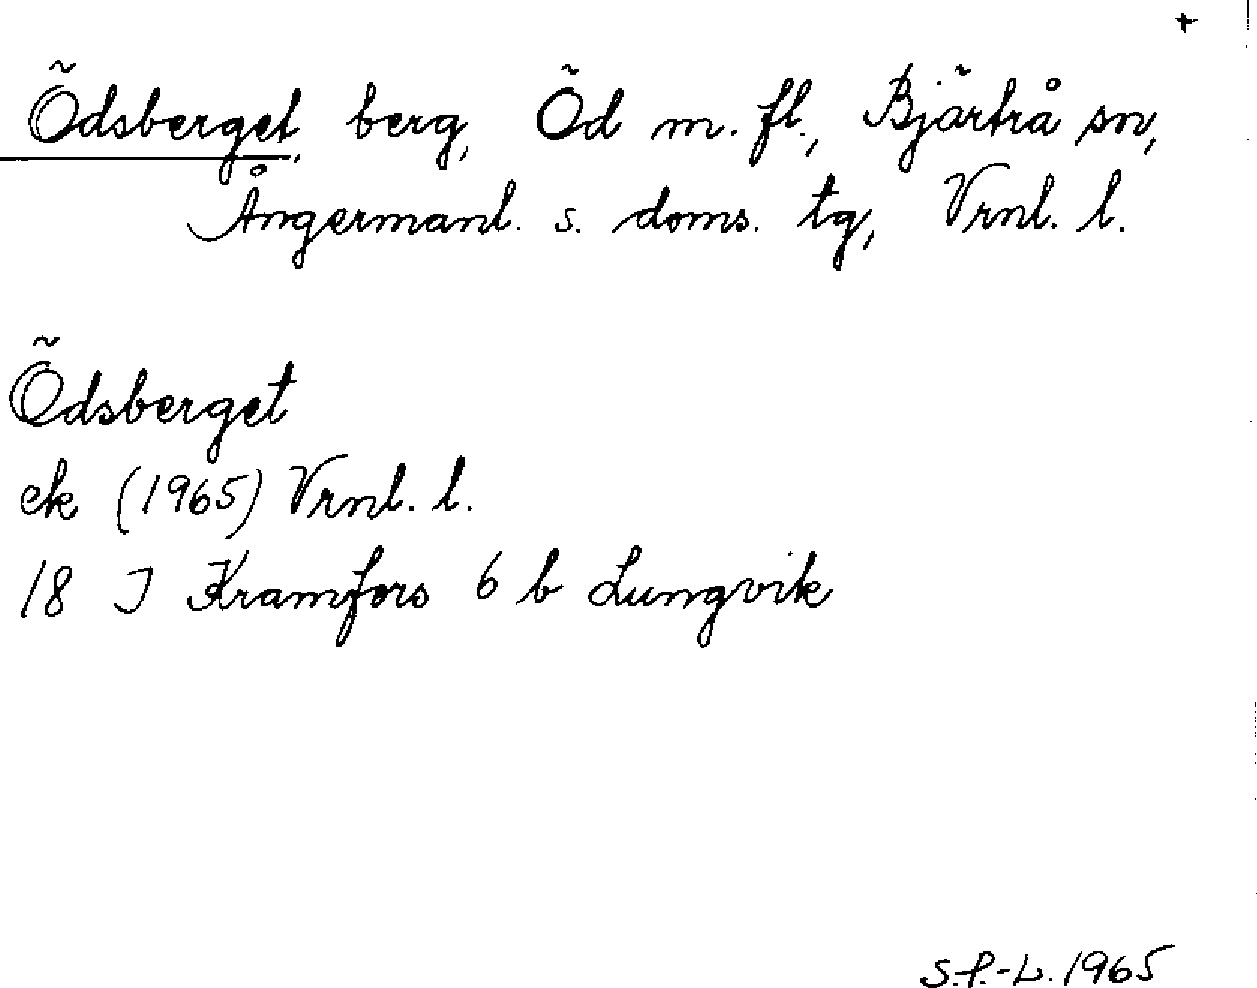 +
Ödsberget, berg, Öd m. fl., Bjärtrå sn,
Ångermanl. s. doms. tg, Vrnl. l.
Ödsberget
ek (1965) Vrnl. l.
18 J Kramfors 6 b Lungvik
S.P.-L. 1965